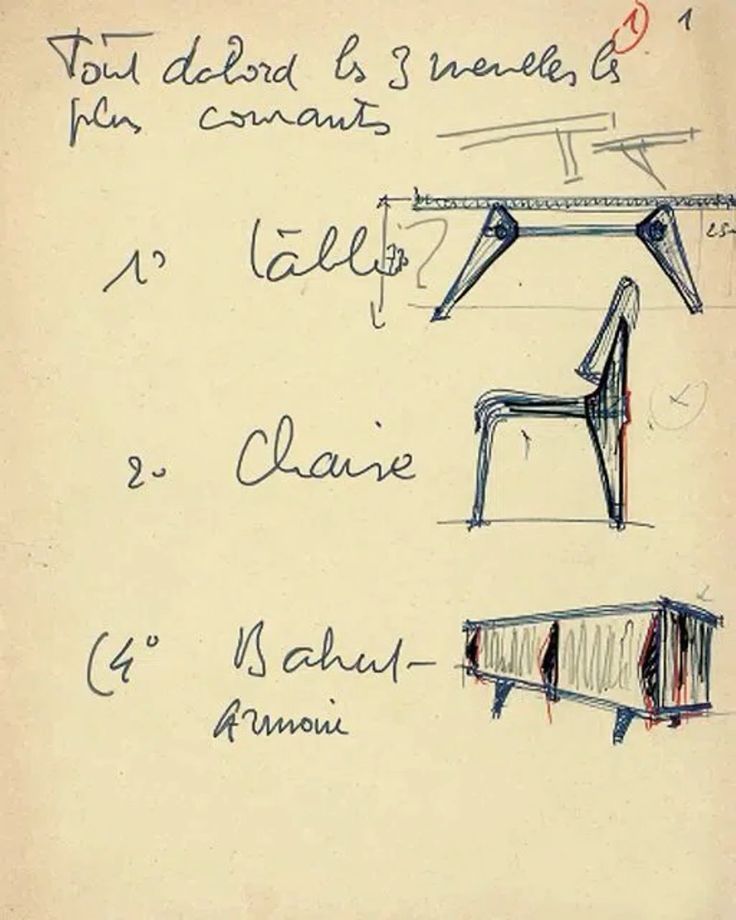 1) 1
Tout dabord les 3 meubles les
plus courants
1° table 73
25
2o Chaise
(4° Bahut-
Armoire